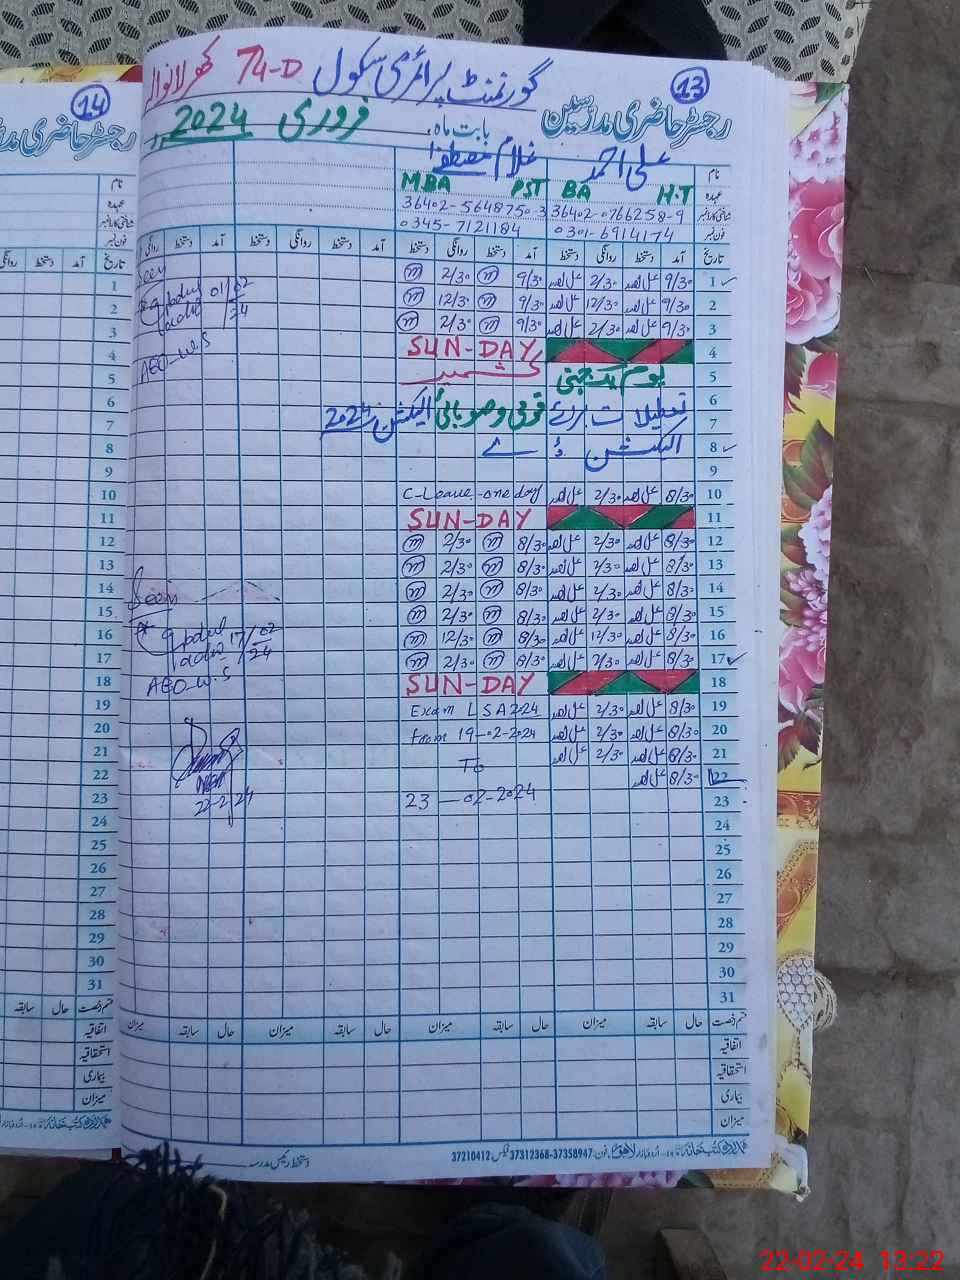 14
رجسٹر حاضری
13
گورنمنٹ پرائمری سکول 74-D کھرلانوالہ
رجسٹر حاضری مدرسین بابت ماہ، فروری 2024ء
نام علی احمد غلام مصطفیٰ
عہدہ H.T BA PST M.BA
شناختی کارڈ نمبر 36402-0766258-9 36402-5648750-3
فون نمبر 0301-6914174 0345-7121184
تاریخ آمد دستخط روانگی دستخط آمد دستخط روانگی دستخط آمد دستخط روانگی دستخط آمد دستخط روانگی
1 9/30 علی احمد 2/30 علی احمد 9/30 m 2/30 m
2 9/30 علی احمد 12/30 علی احمد 9/30 m 12/30 m
3 9/30 علی احمد 2/30 علی احمد 9/30 m 2/30 m
4 SUN-DAY
5 یوم یکجہتی کشمیر
6 تعطیلات برائے قومی و صوبائی الیکشن 2024
7
8 الیکشن ڈے
9
10 8/30 علی احمد 2/30 علی احمد C-Leave-one day
11 SUN-DAY
12 8/30 علی احمد 2/30 علی احمد 8/30 m 2/30 m
13 8/30 علی احمد 2/30 علی احمد 8/30 m 2/30 m
14 8/30 علی احمد 2/30 علی احمد 8/30 m 2/30 m
15 8/30 علی احمد 2/30 علی احمد 8/30 m 2/30 m
16 8/30 علی احمد 12/30 علی احمد 8/30 m 12/30 m
17 8/30 علی احمد 2/30 علی احمد 8/30 m 2/30 m
18 SUN-DAY
19 8/30 علی احمد 2/30 علی احمد Exam LSA 2024
20 8/30 علی احمد 2/30 علی احمد from 19-02-2024
21 8/30 علی احمد 2/30 علی احمد To
22 8/30 علی احمد
23 23-02-2024
24
25
26
27
28
29
30
31
Seen
01/02/24
AEO-W.S
Seen
17/02/24
AEO-W.S
22-2-24
قسم رخصت حال سابقہ میزان حال سابقہ میزان حال سابقہ میزان حال سابقہ میزان
اتفاقیہ
استحقاقیہ
بیماری
میزان
دستخط رئیس مدرسہ
اردو بازار لاہور، فون: 37358947-37312368 فیکس 37210412
تاریخ
نام
عہدہ
شناختی کارڈ نمبر
فون نمبر
1
2
3
4
5
6
7
8
9
10
11
12
13
14
15
16
17
18
19
20
21
22
23
24
25
26
27
28
29
30
31
قسم رخصت حال سابقہ
اتفاقیہ
استحقاقیہ
بیماری
میزان
22-02-24 13:22